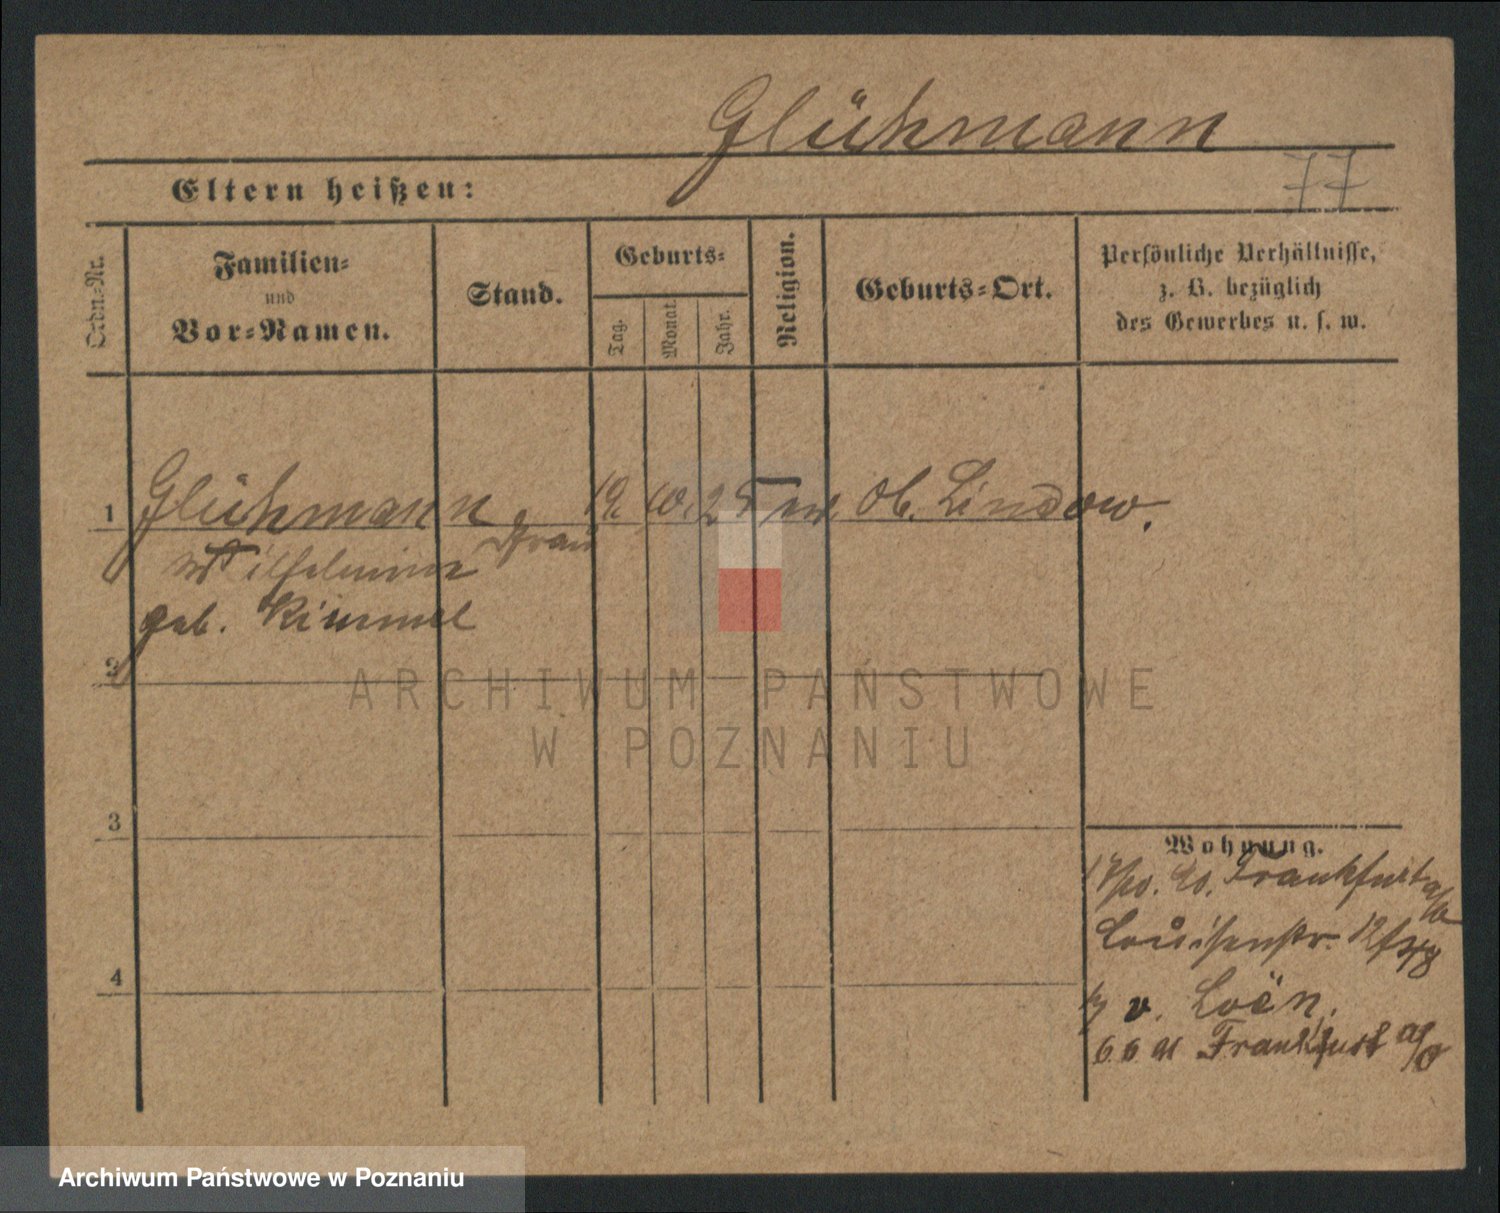 Glühmann
77
Eltern heißen:
Ordn.-Nr.
Familien-
und
Vor-Namen.
Stand.
Geburts-
Tag.
Monat.
Jahr.
Religion.
Geburts-Ort.
Persönliche Verhältnisse,
z. B. bezüglich
des Gewerbes u. s. w.
1 Glühmann 19. 10. 25 ev. Ob. Lindow.
Wilhelmine Frau
geb. Kimmel
2
3
4
Wohnung.
Frankfurt a/O
Louisenstr. 12
v. Loën,
6 6 91 Frankfurt a/O
ARCHIWUM PAŃSTWOWE
W POZNANIU
Archiwum Państwowe w Poznaniu